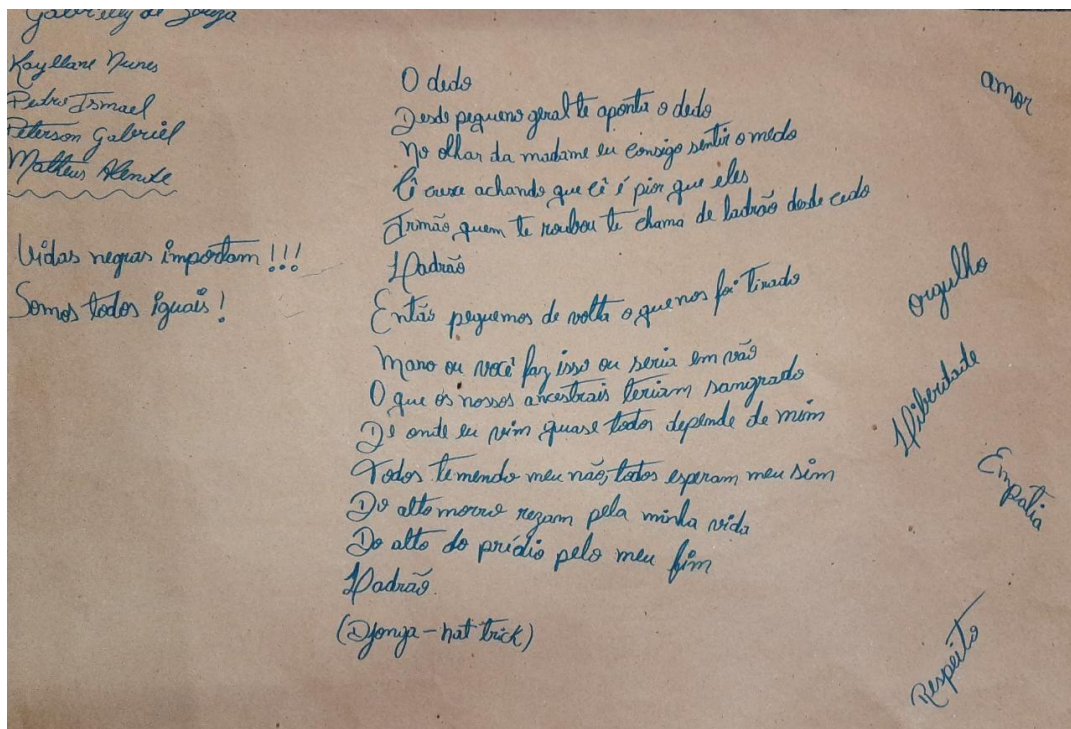 Gabrielly de Souza
Kayllane Nunes
Pedro Ismael
Peterson Gabriel
Matheus
Vidas negras importam!!!
Somos todos iguais!
O dedo
Desde pequeno geral te aponta o dedo
No olhar da madame eu consigo sentir o medo
Cê cresce achando que cê é pior que eles
Irmão quem te roubou te chama de ladrão desde cedo
Ladrão
Então peguemos de volta o que nos foi tirado
Mano ou você faz isso ou seria em vão
O que os nossos ancestrais teriam sangrado
De onde eu vim quase todos depende de mim
Todos temendo meu não, todos esperam meu sim
Do alto morro rezam pela minha vida
Do alto do prédio pelo meu fim
Ladrão.
(Djonga - hat trick)
amor
orgulho
Liberdade
Empatia
Respeito